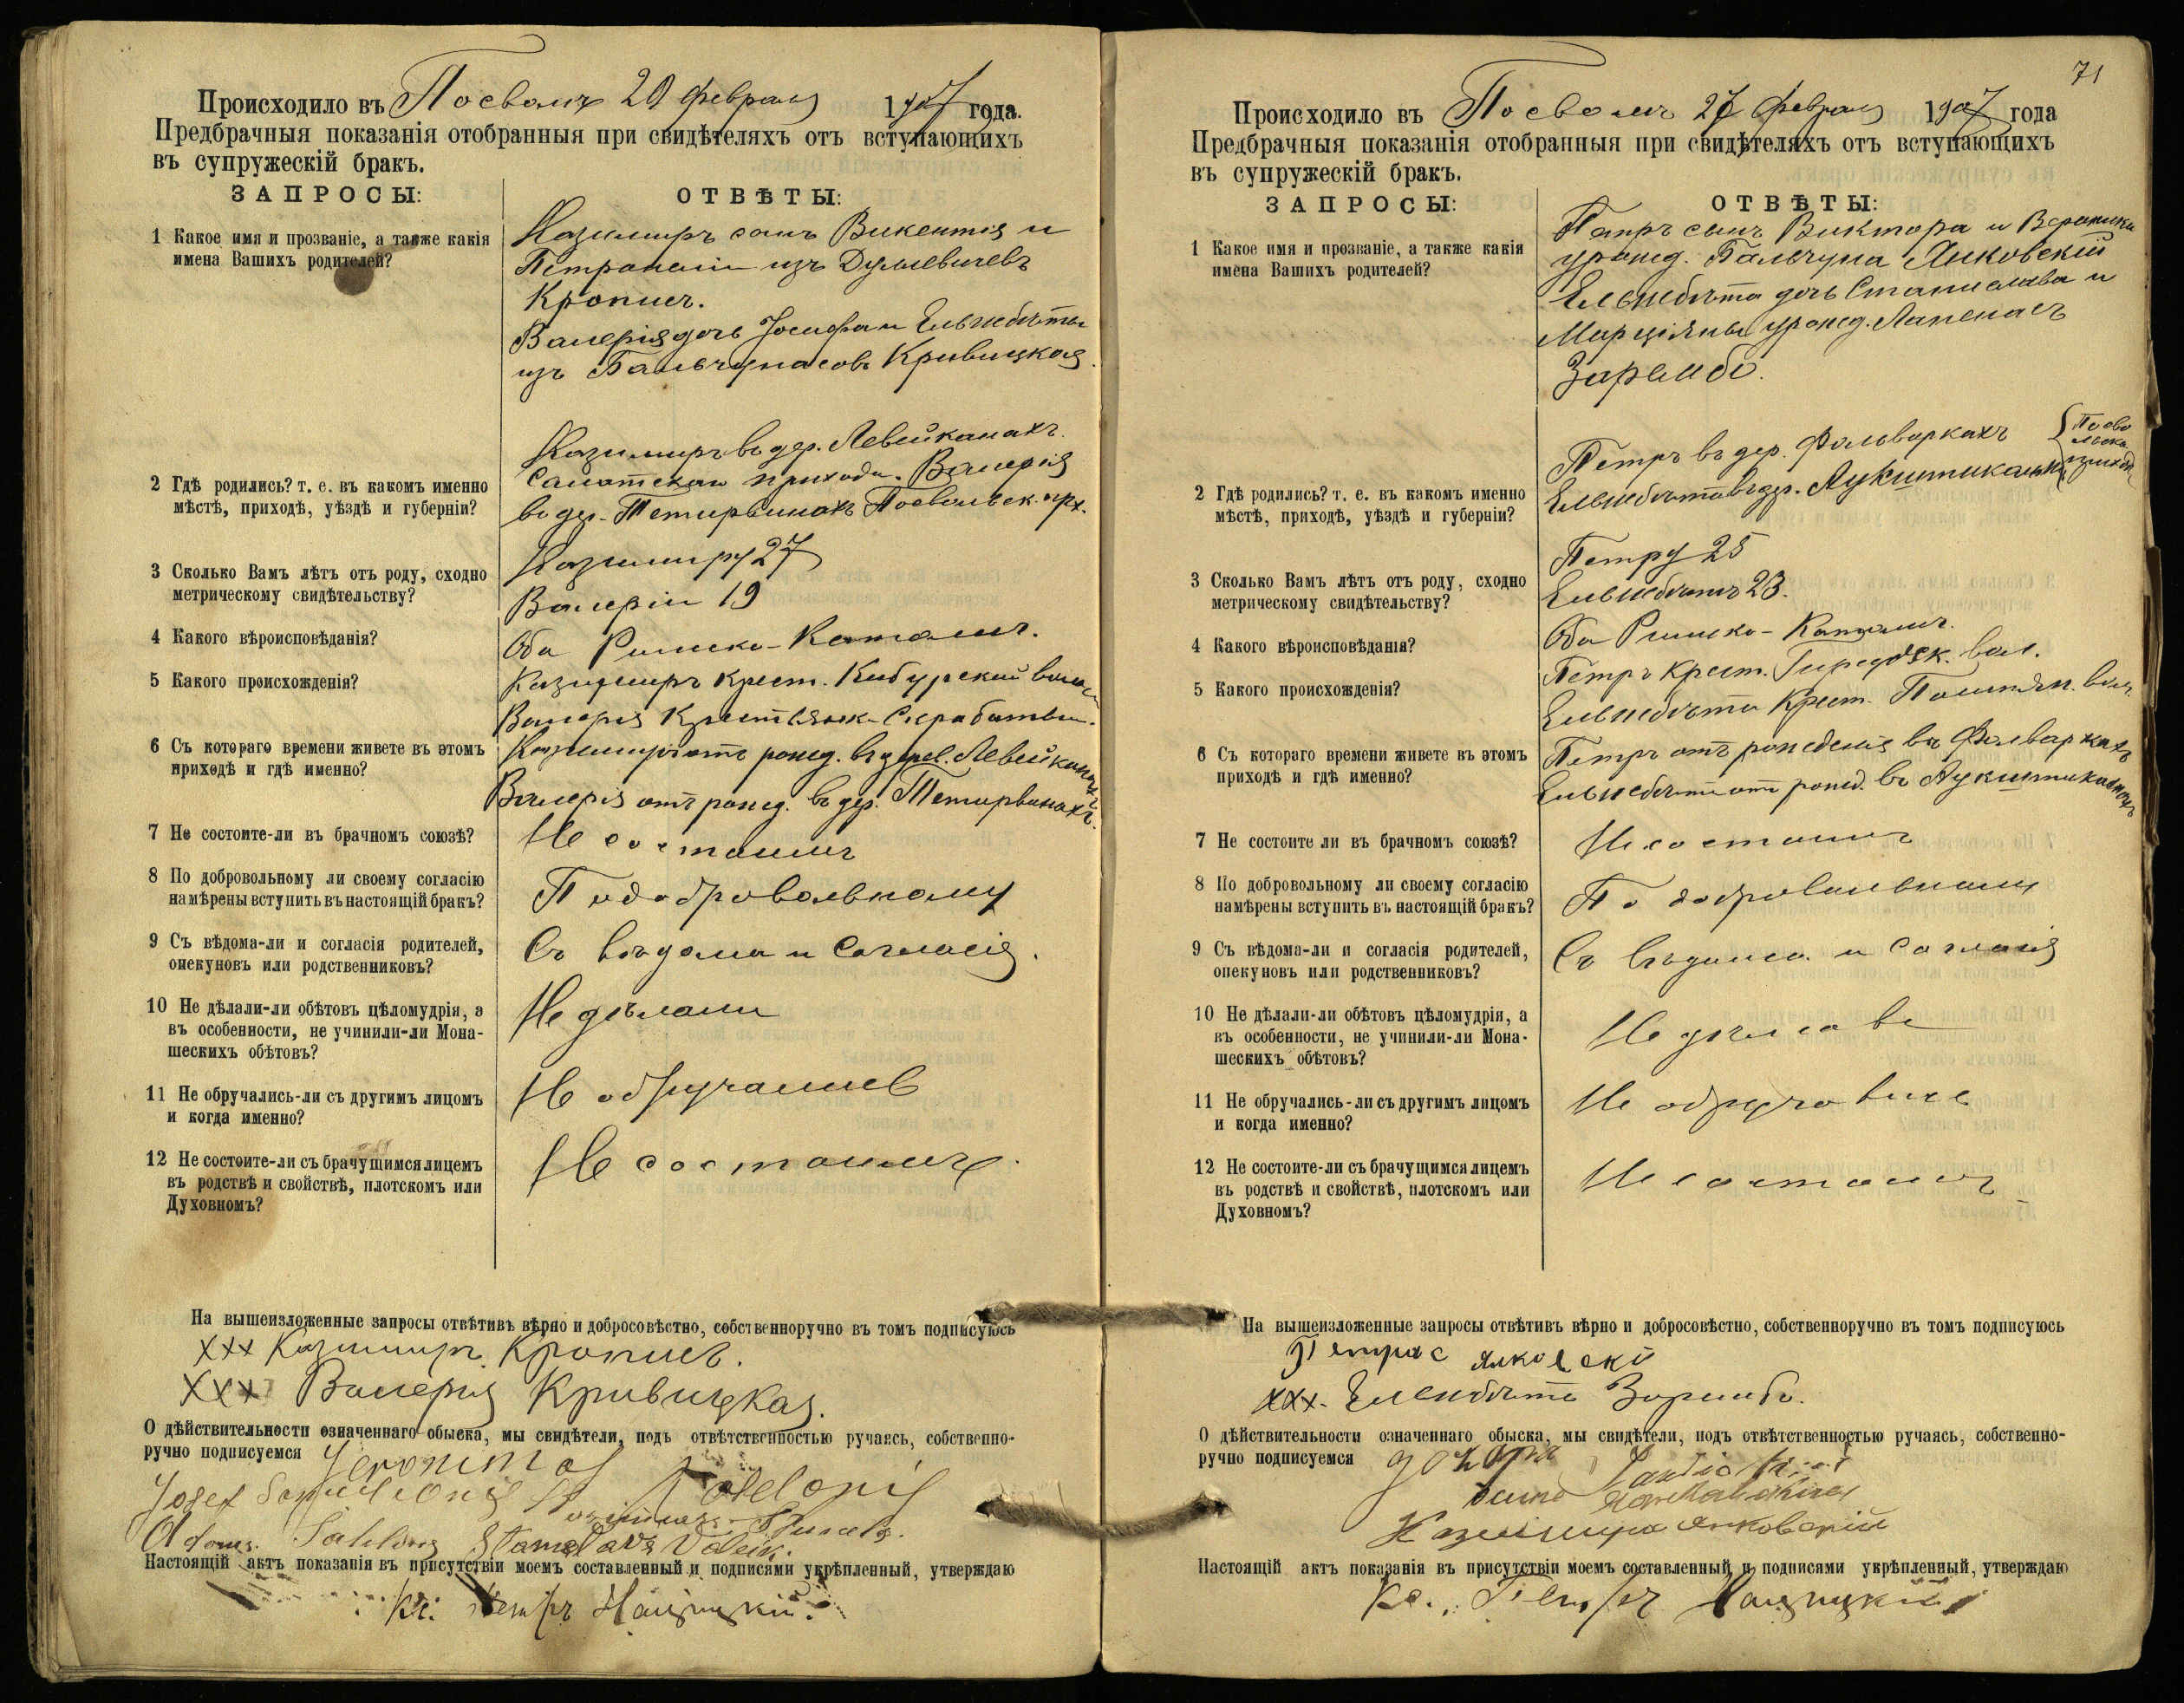 Происходило въ Посволѣ 20 февраля 1907 года.
Предбрачныя показанія отобранныя при свидѣтеляхъ отъ вступающихъ
въ супружескій бракъ.
ЗАПРОСЫ: ОТВѢТЫ:
1 Какое имя и прозваніе, а также какія
имена Вашихъ родителей?
Казимиръ сынъ Викентія и
Петронеліи изъ Дулевичевъ
Крописъ.
Валерія дочь Іосифа и Ельжбѣты
изъ Бальчунасовъ Кривицкая.
2 Гдѣ родились? т. е. въ какомъ именно
мѣстѣ, приходѣ, уѣздѣ и губерніи?
Казимиръ въ дер. Левейканахъ
прихода. Валерія
въ дер. Посвольск. прх.
3 Сколько Вамъ лѣтъ отъ роду, сходно
метрическому свидѣтельству?
Казимиру 27
Валеріи 19
4 Какого вѣроисповѣданія?
Оба Римско-Католич.
5 Какого происхожденія?
Казимиръ крест.
Валерія
6 Съ котораго времени живете въ этомъ
приходѣ и гдѣ именно?
Казимиръ отъ рожд. въ дерев. Левейканахъ
Валерія отъ рожд. въ дер.
7 Не состоите-ли въ брачномъ союзѣ?
Не состоимъ
8 По добровольному ли своему согласію
намѣрены вступить въ настоящій бракъ?
По добровольному
9 Съ вѣдома-ли и согласія родителей,
опекуновъ или родственниковъ?
Съ вѣдома и согласія.
10 Не дѣлали-ли обѣтовъ цѣломудрія, а
въ особенности, не учинили-ли Мона-
шескихъ обѣтовъ?
Не дѣлали
11 Не обручались-ли съ другимъ лицомъ
и когда именно?
Не обручались
12 Не состоите-ли съ брачущимся лицемъ
въ родствѣ и свойствѣ, плотскомъ или
Духовномъ?
Не состоимъ.
На вышеизложенные запросы отвѣтивъ вѣрно и добросовѣстно, собственноручно въ томъ подписуюсь
ххх Казимиръ Крописъ.
ххх Валерія Кривицкая.
О дѣйствительности означеннаго обыска, мы свидѣтели, подъ отвѣтственностью ручаясь, собственно-
ручно подписуемся Jeronimas
Jozef
Adomas
Настоящій актъ показанія въ присутствіи моемъ составленный и подписями укрѣпленный, утверждаю
Кс. Петръ
71
Происходило въ Посволѣ февраля 1907 года
Предбрачныя показанія отобранныя при свидѣтеляхъ отъ вступающихъ
въ супружескій бракъ.
ЗАПРОСЫ: ОТВѢТЫ:
1 Какое имя и прозваніе, а также какія
имена Вашихъ родителей?
Петръ сынъ Виктора и Вероники
урожд. Бальчуна Янковскій
Ельжбѣта дочь Станислава и
Марціяны урожд. Лапенасъ
Зарембо.
2 Гдѣ родились? т. е. въ какомъ именно
мѣстѣ, приходѣ, уѣздѣ и губерніи?
Петръ въ дер. Фольваркахъ
Ельжбѣта въ дер.
3 Сколько Вамъ лѣтъ отъ роду, сходно
метрическому свидѣтельству?
Петру 25
Ельжбѣтѣ 23.
4 Какого вѣроисповѣданія?
Оба Римско-Католич.
5 Какого происхожденія?
Петръ крест. вол.
Ельжбѣта крест. вол.
6 Съ котораго времени живете въ этомъ
приходѣ и гдѣ именно?
Петръ отъ рожденія въ Фольваркахъ
Ельжбѣта отъ рожд. въ
7 Не состоите ли въ брачномъ союзѣ?
Не состоимъ
8 По добровольному ли своему согласію
намѣрены вступить въ настоящій бракъ?
По добровольному
9 Съ вѣдома-ли и согласія родителей,
опекуновъ или родственниковъ?
Съ вѣдома и согласія
10 Не дѣлали-ли обѣтовъ цѣломудрія, а
въ особенности, не учинили-ли Мона-
шескихъ обѣтовъ?
Не дѣлали
11 Не обручались-ли съ другимъ лицомъ
и когда именно?
Не обручались
12 Не состоите-ли съ брачущимся лицемъ
въ родствѣ и свойствѣ, плотскомъ или
Духовномъ?
Не состоимъ
На вышеизложенные запросы отвѣтивъ вѣрно и добросовѣстно, собственноручно въ томъ подписуюсь
Петрас
ххх. Ельжбѣта Зарембо.
О дѣйствительности означеннаго обыска, мы свидѣтели, подъ отвѣтственностью ручаясь, собственно-
ручно подписуемся
Казимиръ Янковскій
Настоящій актъ показанія въ присутствіи моемъ составленный и подписями укрѣпленный, утверждаю
Кс. Петръ